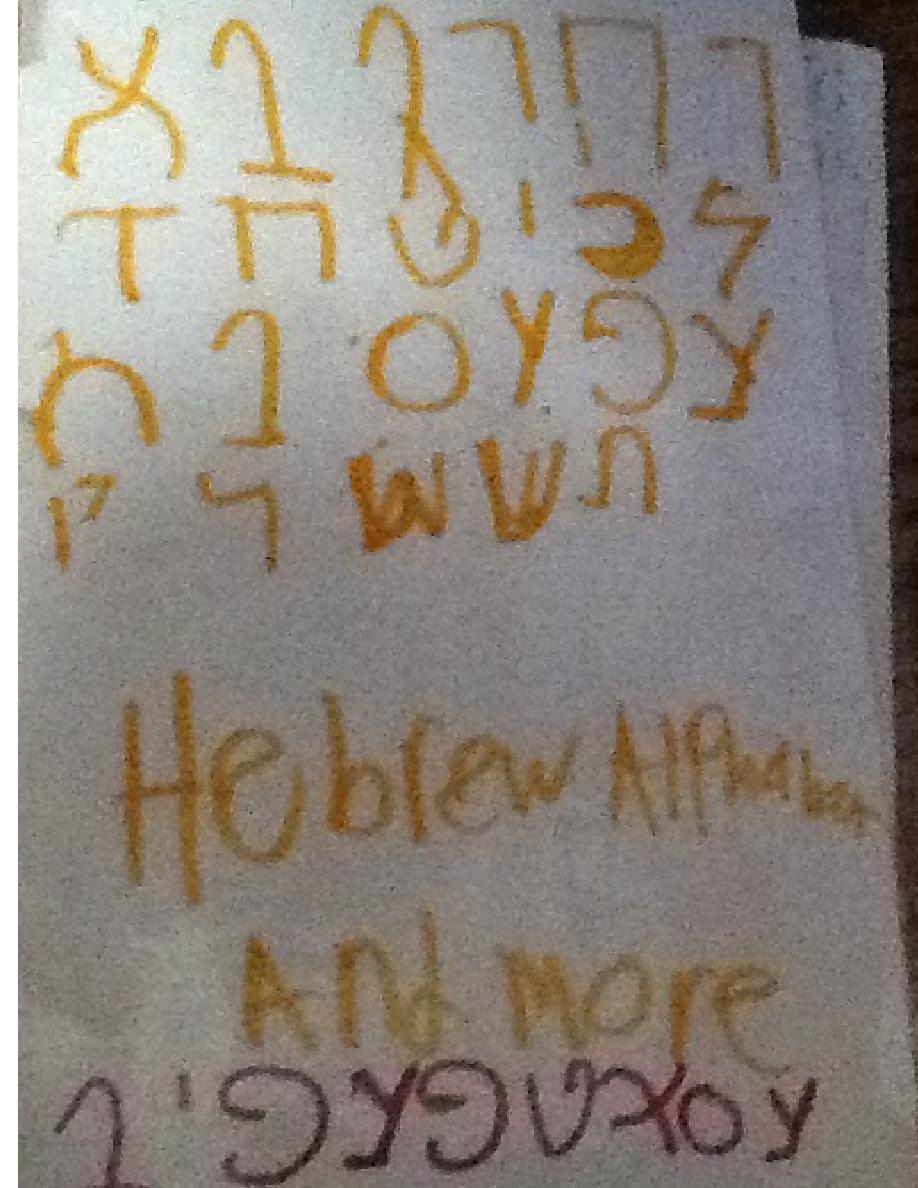 א ב ג ד ה ו
ז ח ט י כ ל
מ נ ס ע פ צ
ק ר ש ש ת
Hebrew Alphabet
And more